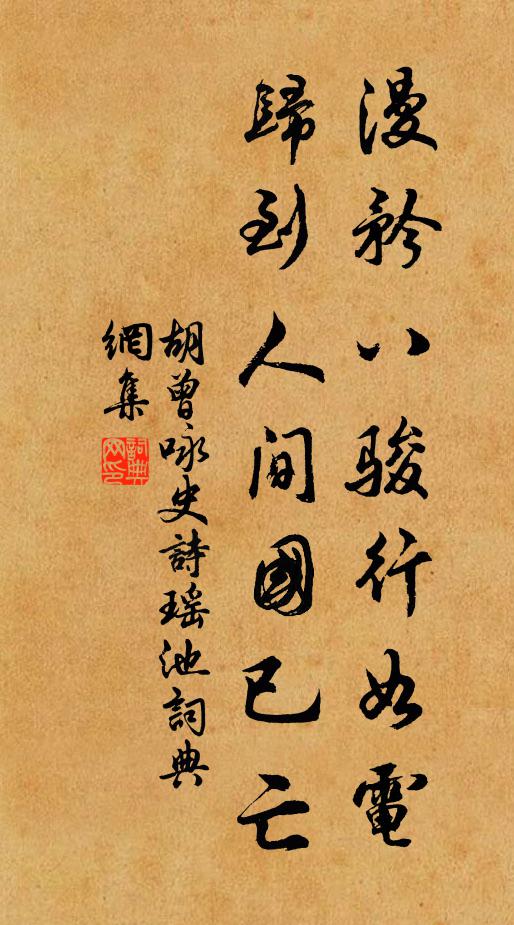 漫矜八駿行如電
歸到人間國已亡
胡曾咏史詩瑶池詞典
網集
詞典
网印